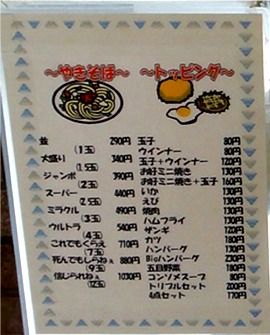 ～やきそば～
～トッピング～
並 290円
(1玉)
大盛り 340円
(1.5玉)
ジャンボ 390円
(2玉)
スーパー 440円
(3玉)
ミラクル 490円
(4玉)
ウルトラ 540円
(5玉)
これでもくらえ 710円
(7玉)
死んでもしらねぇ 880円
(9玉)
信じられねぇ 1030円
(12玉)
玉子 80円
ウインナー 80円
玉子+ウインナー 120円
お好ミニ焼き 130円
お好ミニ焼き+玉子 160円
いか 130円
えび 130円
焼肉 130円
ハムフライ 130円
ザンギ 120円
カツ 180円
ハンバーグ 130円
Bigハンバーグ 230円
五目野菜 180円
コンソメスープ 80円
トリプルセット 200円
4点セット 770円